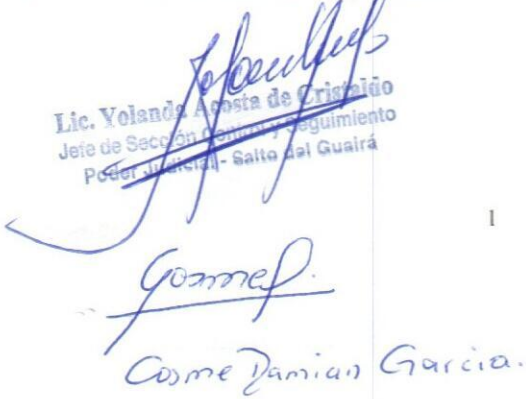 Lic. Yolanda Acosta de Cristaldo
Jefe de Sección Control y Seguimiento
Poder Judicial - Salto del Guairá
1
Cosme Damian Garcia.